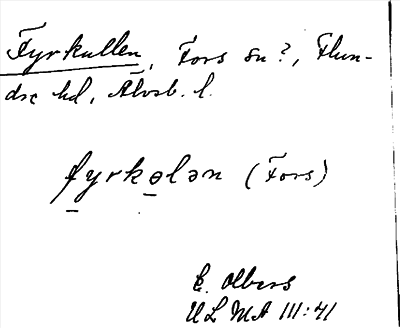 Fyrkullen, Fors sn?, Flun-
dre hd, Älvsb. l.
fyrkɵlən (Fors)
E. Olbers
ULMA 111:41